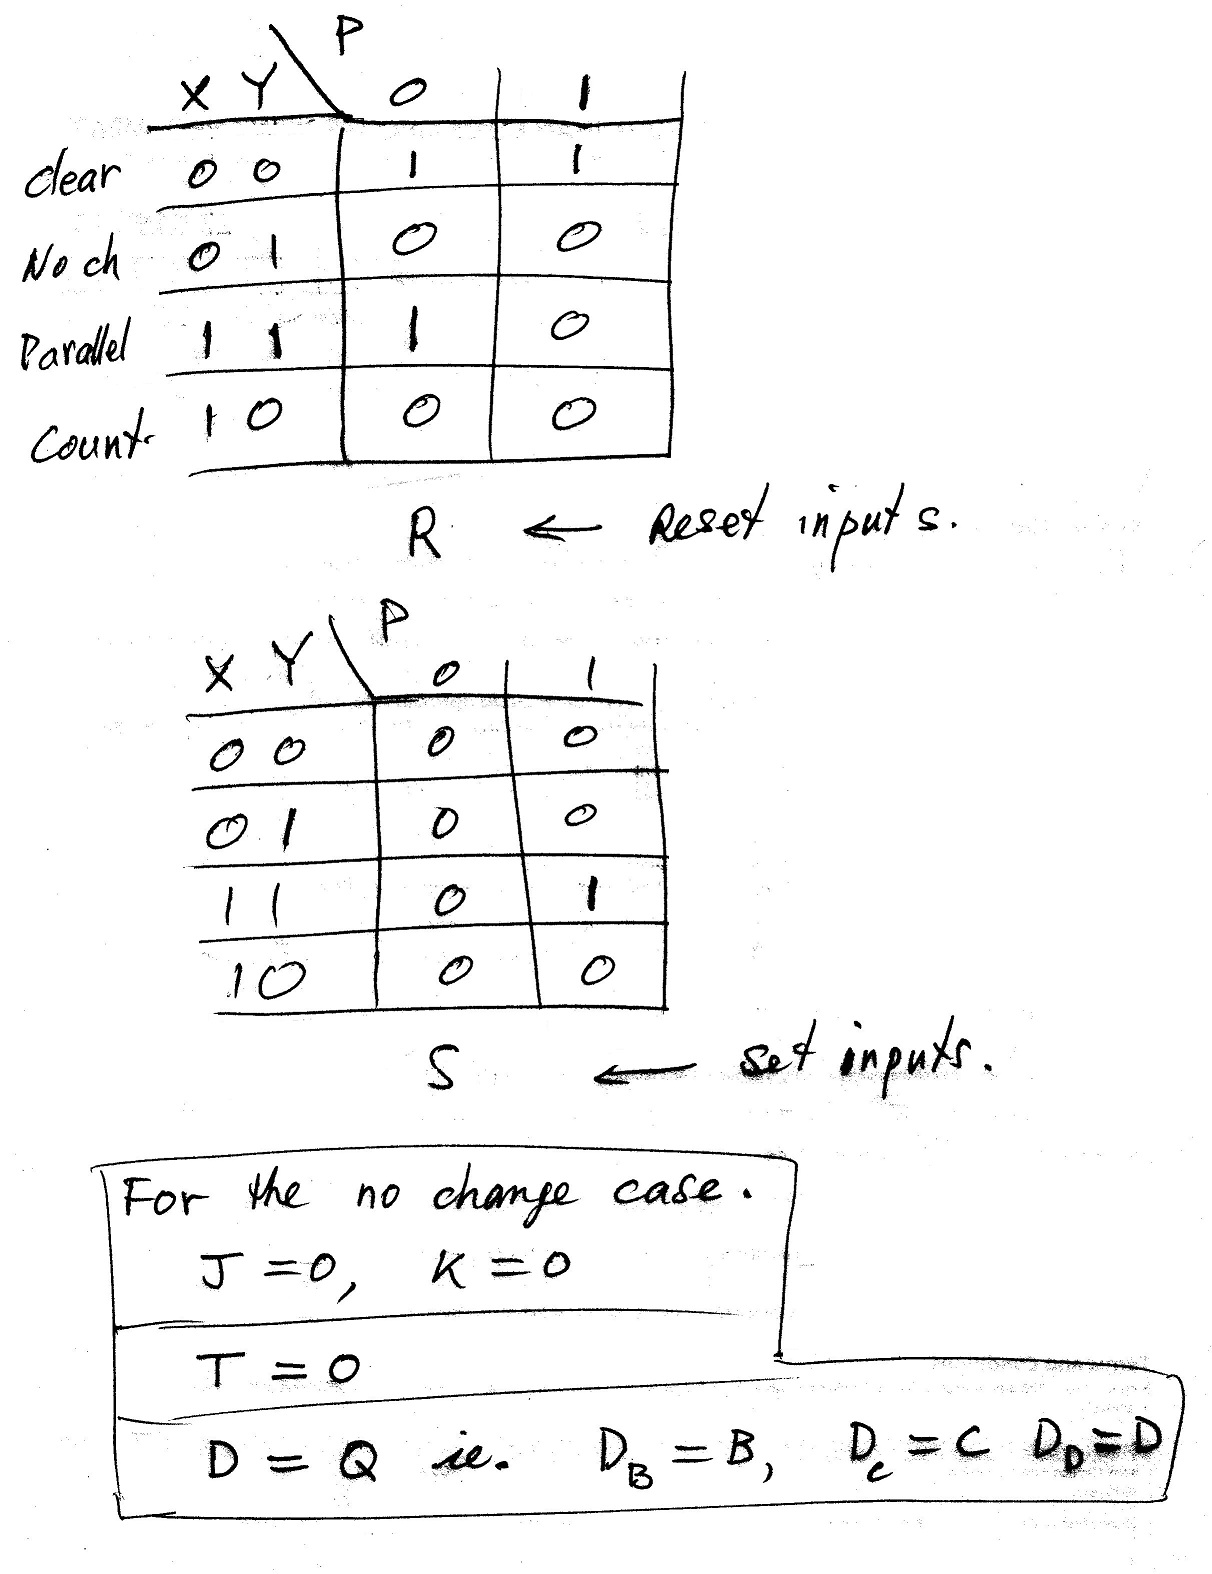 P
X Y 0 1
Clear 0 0 1 1
No ch 0 1 0 0
Parallel 1 1 1 0
Count. 1 0 0 0
R ← Reset inputs.
P
X Y 0 1
0 0 0 0
0 1 0 0
1 1 0 1
1 0 0 0
S ← set inputs.
For the no change case.
J = 0, K = 0
T = 0
D = Q ie. D_B = B, D_C = C D_D = D